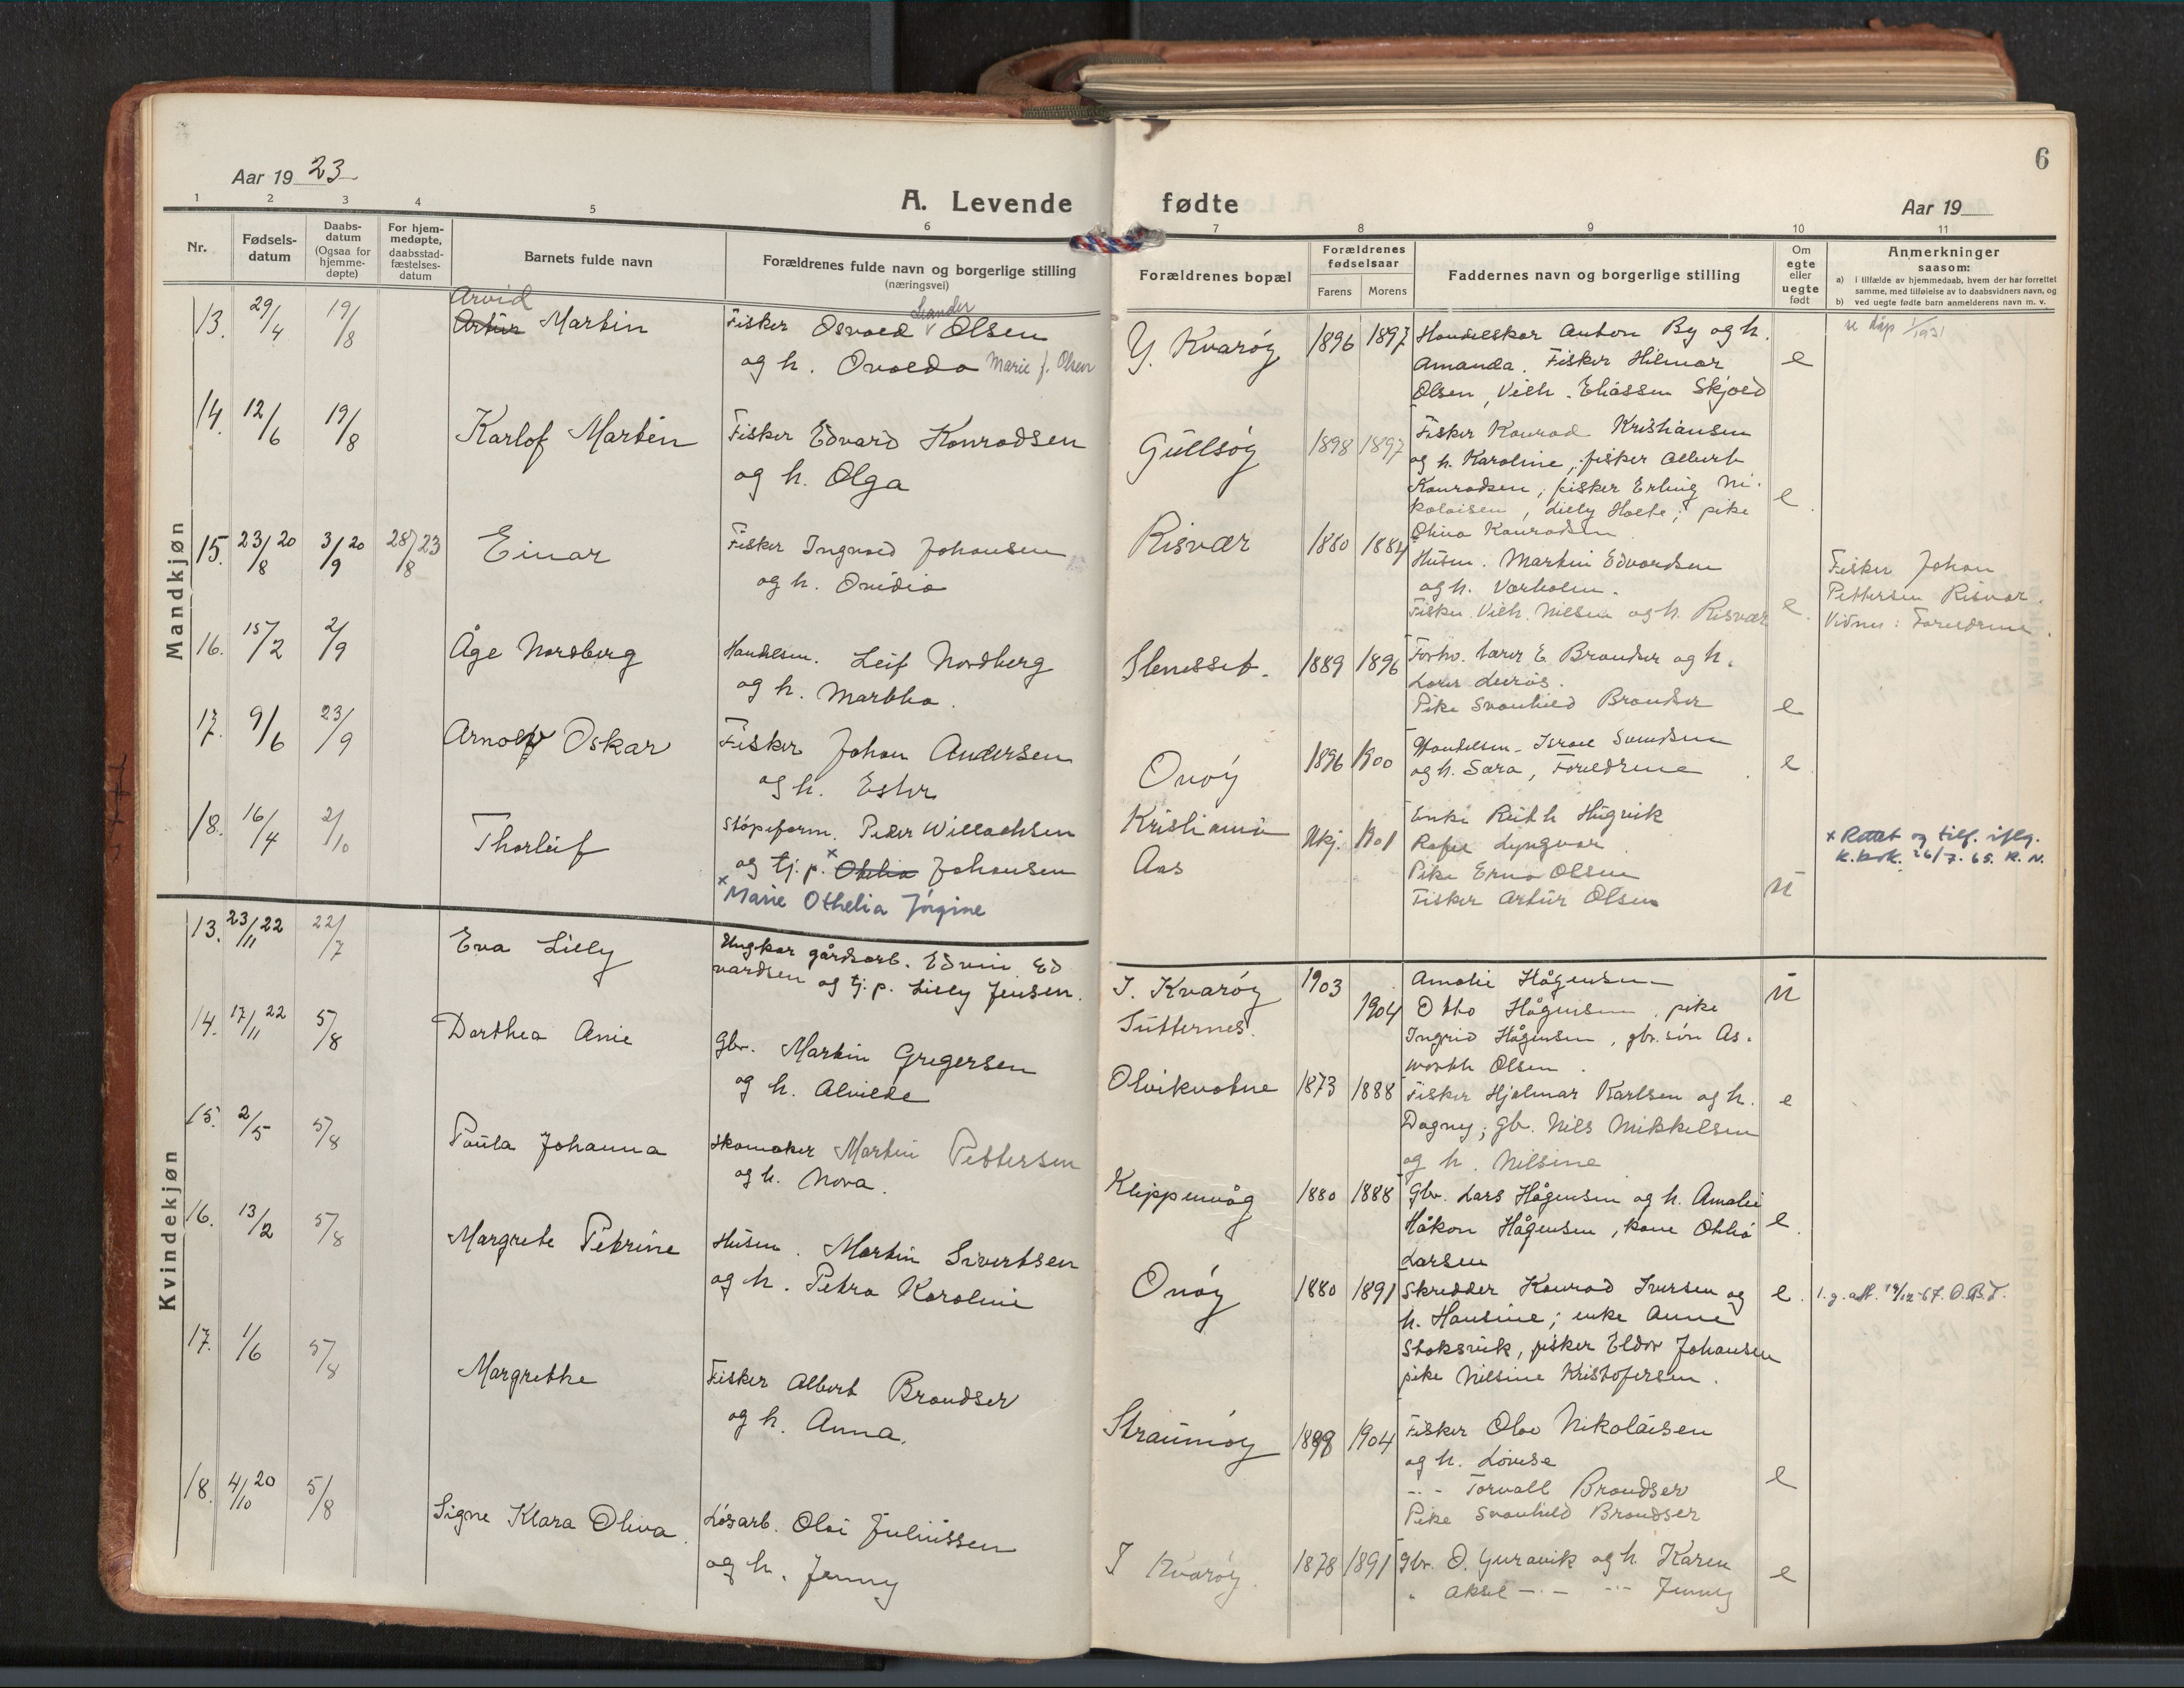 6
Aar 19 23
A. Levende fødte
Aar 19
1 2 3 4 5 6 7 8 9 10 11
Nr.
Fødsels-
datum
Daabs-
datum
(Ogsaa for
hjemme-
døpte)
For hjem-
medøpte,
daabsstad-
fæstelses-
datum
Barnets fulde navn
Forældrenes fulde navn og borgerlige stilling
(næringsvei)
Forældrenes bopæl
Forældrenes
fødselsaar
Farens Morens
Faddernes navn og borgerlige stilling
Om
egte
eller
uegte
født
Anmerkninger
saasom:
a) i tilfælde av hjemmedaab, hvem der har forrettet
samme, med tilføielse av to daabsvidners navn, og
b) ved uegte fødte barn anmelderens navn m. v.
Mandkjøn
13. 29/4 19/8
Arvid
Artur Martin
Leander
Fisker Osvald Olsen
og h. Ovalda Marie f. Olsen
Y. Kvarøy
1896 1897
Handelskar Anton By og h.
Amanda. Fisker Hilmar
Olsen, Vilh. Eliassen Skjold
e
se dåp 1/1931
14. 12/6 19/8
Karlof Martin
Fisker Edvard Konradsen
og h. Olga
Gullsøy
1898 1897
Fisker Konrad Kristiansen
og h. Karoline, fisker Albert
Konradsen, fisker Erling Ni-
kolaisen, Lilly Holte; pike
Olina Konradsen
e.
15. 23/8 20 3/9 20 28/8 23
Einar
Fisker Ingvald Johansen
og h. Ovidia
Risvær
1880 1884
Husm. Martin Edvardsen
og h. Værholm.
Fisker Vilh. Nilsen og h. Risvær
e.
Fisker Johan
Pettersen Risvær.
Vidner: Foreldrene.
16. 15/2 2/9
Åge Nordberg
Handelsm. Leif Nordberg
og h. Martha.
Stenesset.
1889 1896
Forhv. lærer E. Brandser og h.
Lovis Lurøs.
Pike Svanhild Brandser
e
17. 9/6 23/9
Arnolf Oskar
Fisker Johan Andersen
og h. Ester
Onøy
1896 1900
Handelsm. Israel Svendsen
og h. Sara, Foreldrene
e
18. 16/4 2/10
Thorleif
Støpeform. Peder Willachsen
og tj. p. × Othelia Johansen
× Marie Othelia Jørgine
Kristiania
Aas
Ukj. 1901
Enke Ruth Hugvik
Rafel Lyngvær
Pike Erna Olsen
Fisker Artur Olsen
u
× Rettet og tilf. iflg.
k.bok. 26/7. 65. R. N.
Kvindekjøn
13. 23/11 22 22/7
Eva Lilly
Ungkar gårdsarb. Edvin Ed
vardsen og tj. p. Lilly Jensen.
I. Kvarøy
Sutternes.
1903
1904
Amalie Hågensen
Otto Hågensen, pike
Ingrid Hågensen, gbr.søn As-
worth Olsen.
u
14. 17/11 22 5/8
Dorthea Anie
Gbr. Martin Gregersen
og h. Alvilde
Olvikvatne
1873 1888
Fisker Hjalmar Karlsen og h.
Dagny; Gb. Nils Mikkelsen
og h. Nilsine
e
15. 2/5 5/8
Paula Johanna
Skomaker Martin Pettersen
og h. Nora.
Klippenvåg
1880 1888
Gbr. Lars Hågensen og h. Amalie
Håkon Hågensen, kone Othlia
Larsen
e.
16. 13/2 5/8
Margrete Petrine
Husm. Martin Sivertsen
og h. Petra Karoline
Onøy
1880 1891
Skredder Konrad Iversen og
h. Hansine; enke Anne
Stoksvik, fisker Eldor Johansen
pike Nilsine Kristofersen.
e.
l. g. att. 19/12-67. O.B.T.
17. 1/6 5/8
Margrethe
Fisker Albert Brandser
og h. Anna.
Straumøy
1898 1904
Fisker Olve Nikolaisen
og h. Lovise
-..- Torvall Brandser
Pike Svanhild Brandser
e
18. 4/10 20 5/8
Signe Klara Oliva.
Løsarb. Olai Juliussen
og h. Jenny
I Kvarøy.
1878 1891
Gbr. O. Guravik og h. Karen
" Aksel -..- -..- Jenny
e